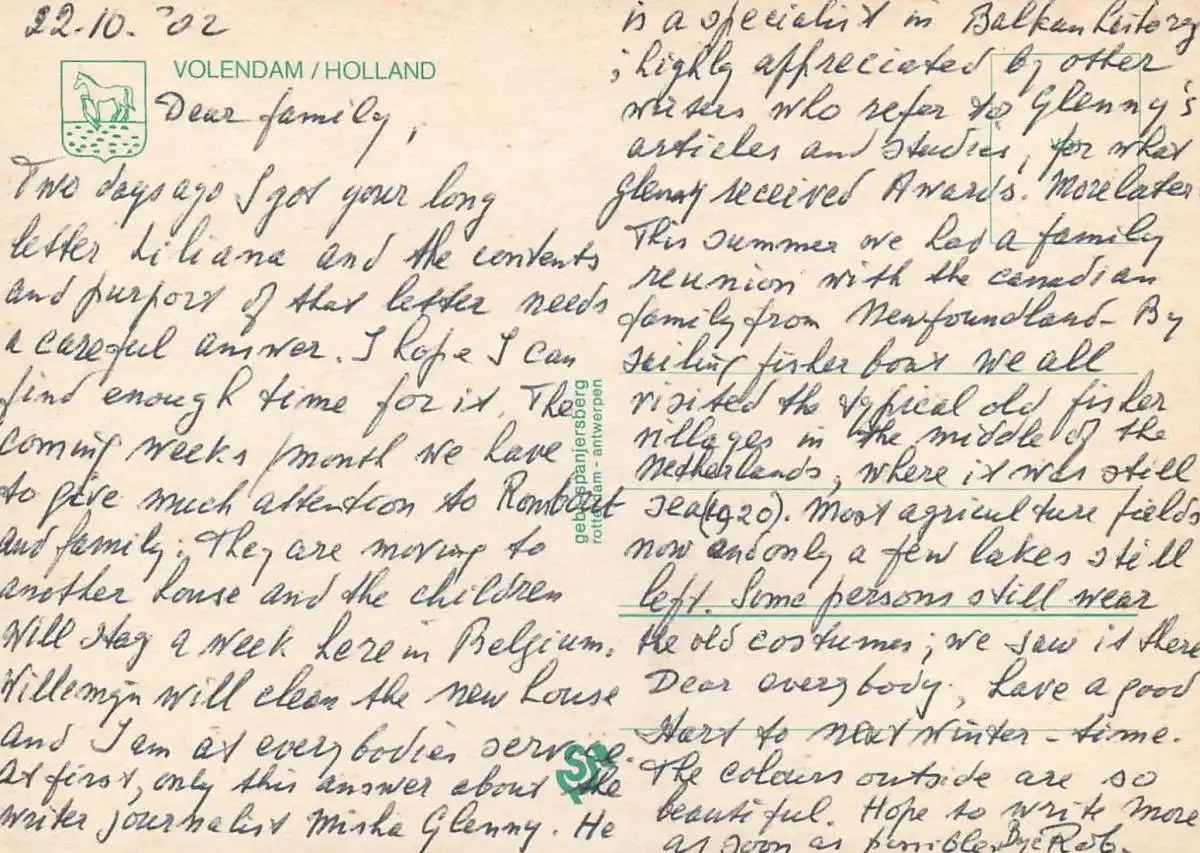 22.10.'02
VOLENDAM / HOLLAND
Dear family,
Two days ago I got your long
letter Liliana and the contents
and purport of that letter needs
a careful answer. I hope I can
find enough time for it. The
coming weeks/month we have
to give much attention to Rombout
and family. They are moving to
another house and the children
will stay a week here in Belgium.
Willemijn will clean the new house
and I am at everybodies service.
At first, only this answer about the
writer journalist Misha Glenny. He
gebr. spanjersberg
rotterdam - antwerpen
is a specialist in Balkan history
; highly appreciated by other
writers who refer to Glenny's
articles and studies, for what
Glenny received Awards. More later
This summer we had a family
reunion with the canadian
family from Newfoundland - By
sailing fisher boat we all
visited the typical old fisher
villages in the middle of the
Netherlands, where it was still
sea (1920). Most agriculture fields
now and only a few lakes still
left. Some persons still wear
the old costumes; we saw it there
Dear everybody, have a good
start to next winter-time.
The colours outside are so
beautiful. Hope to write more
as soon as possible. Bye Rob.